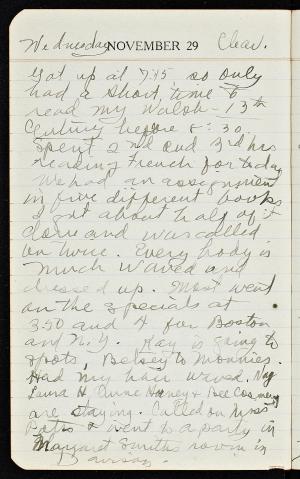 Wednesday NOVEMBER 29 Clear.
Got up at 7:45 so only
had a short time to
read my Walsh - 13th
Century before 8:30.
Spent 2nd and 3rd hrs
reading French for today
We had an assignment
in five different books
I got about half of it
done and was called
on twice. Every body is
much waved and
dressed up. Most went
on the specials at
3:50 and 4 for Boston
and N.Y. Kay is going to
Spots, Betsey to Monnies.
Had my hair waved. Nay
Laura H. Anne Haney & Bee
are staying. Called on Miss
Potts & went to a party in
Margaret Smith's room in
Davison.